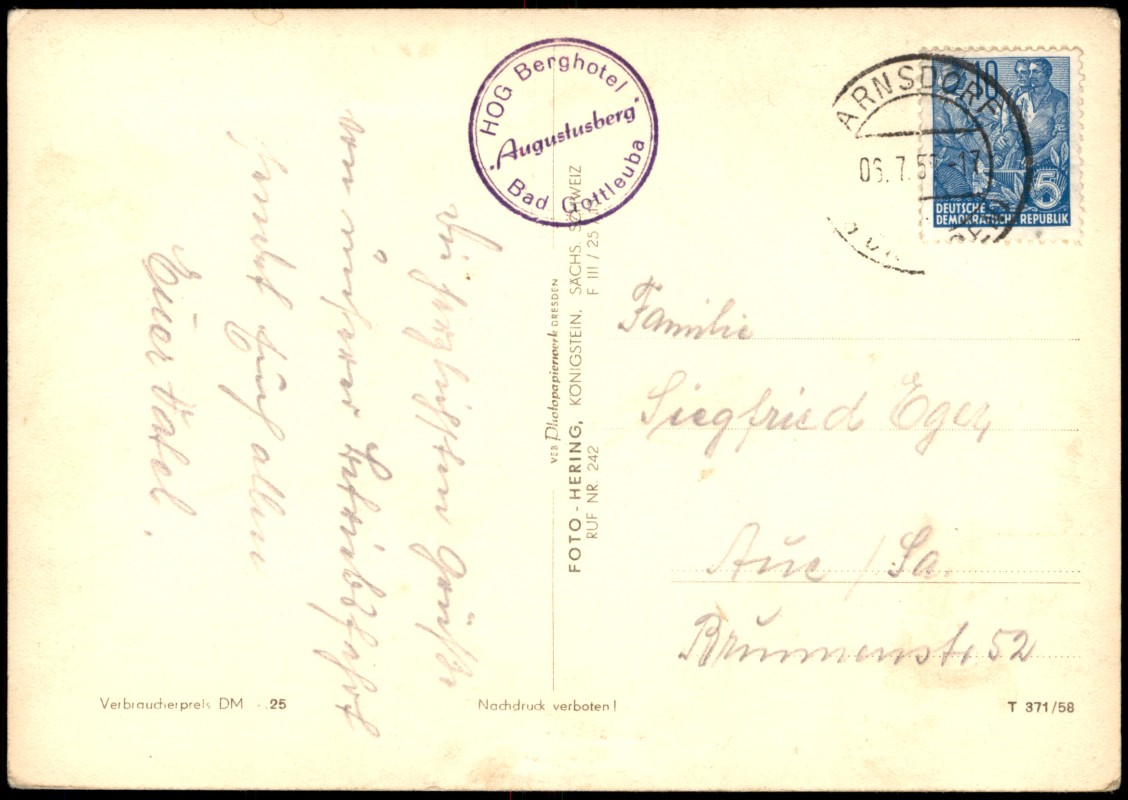 HOG Berghotel
"Augustusberg"
Bad Gottleuba
ARNSDORF
06. 7. 5 -17
10
5
DEUTSCHE
DEMOKRATISCHE REPUBLIK
Die herzlichsten Grüße
von unserer Betriebsfahrt
sendet Euch allen
Euer Vatel.
VEB Photopapierwerk DRESDEN
FOTO - HERING, KÖNIGSTEIN, SÄCHS. SCHWEIZ
RUF NR. 242 F III / 25
Familie
Siegfried Eger,
Aue / Sa.
Brunnenstr 52
Verbraucherpreis DM -.25
Nachdruck verboten!
T 371/58